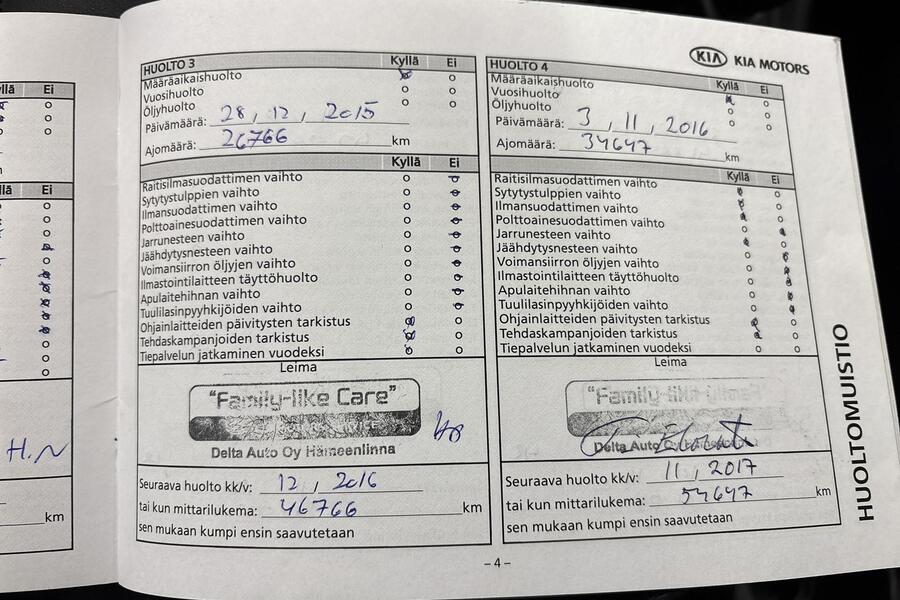 Ei
Ei
H.N
km
HUOLTO 3 Kyllä Ei
Määräaikaishuolto
Vuosihuolto
Öljyhuolto
Päivämäärä: 28, 12, 2015
Ajomäärä: 26766 km
Kyllä Ei
Raitisilmasuodattimen vaihto
Sytytystulppien vaihto
Ilmansuodattimen vaihto
Polttoainesuodattimen vaihto
Jarrunesteen vaihto
Jäähdytysnesteen vaihto
Voimansiirron öljyjen vaihto
Ilmastointilaitteen täyttöhuolto
Apulaitehihnan vaihto
Tuulilasinpyyhkijöiden vaihto
Ohjainlaitteiden päivitysten tarkistus
Tehdaskampanjoiden tarkistus
Tiepalvelun jatkaminen vuodeksi
Leima
"Family-like Care"
Delta Auto Oy Hämeenlinna
Seuraava huolto kk/v: 12, 2016
tai kun mittarilukema: 46766 km
sen mukaan kumpi ensin saavutetaan
KIA KIA MOTORS
HUOLTO 4 Kyllä Ei
Määräaikaishuolto
Vuosihuolto
Öljyhuolto
Päivämäärä: 3, 11, 2016
Ajomäärä: 34647 km
Kyllä Ei
Raitisilmasuodattimen vaihto
Sytytystulppien vaihto
Ilmansuodattimen vaihto
Polttoainesuodattimen vaihto
Jarrunesteen vaihto
Jäähdytysnesteen vaihto
Voimansiirron öljyjen vaihto
Ilmastointilaitteen täyttöhuolto
Apulaitehihnan vaihto
Tuulilasinpyyhkijöiden vaihto
Ohjainlaitteiden päivitysten tarkistus
Tehdaskampanjoiden tarkistus
Tiepalvelun jatkaminen vuodeksi
Leima
"Family-like
Delta Auto
Seuraava huolto kk/v: 11, 2017
tai kun mittarilukema: 54647 km
sen mukaan kumpi ensin saavutetaan
HUOLTOMUISTIO
– 4 –